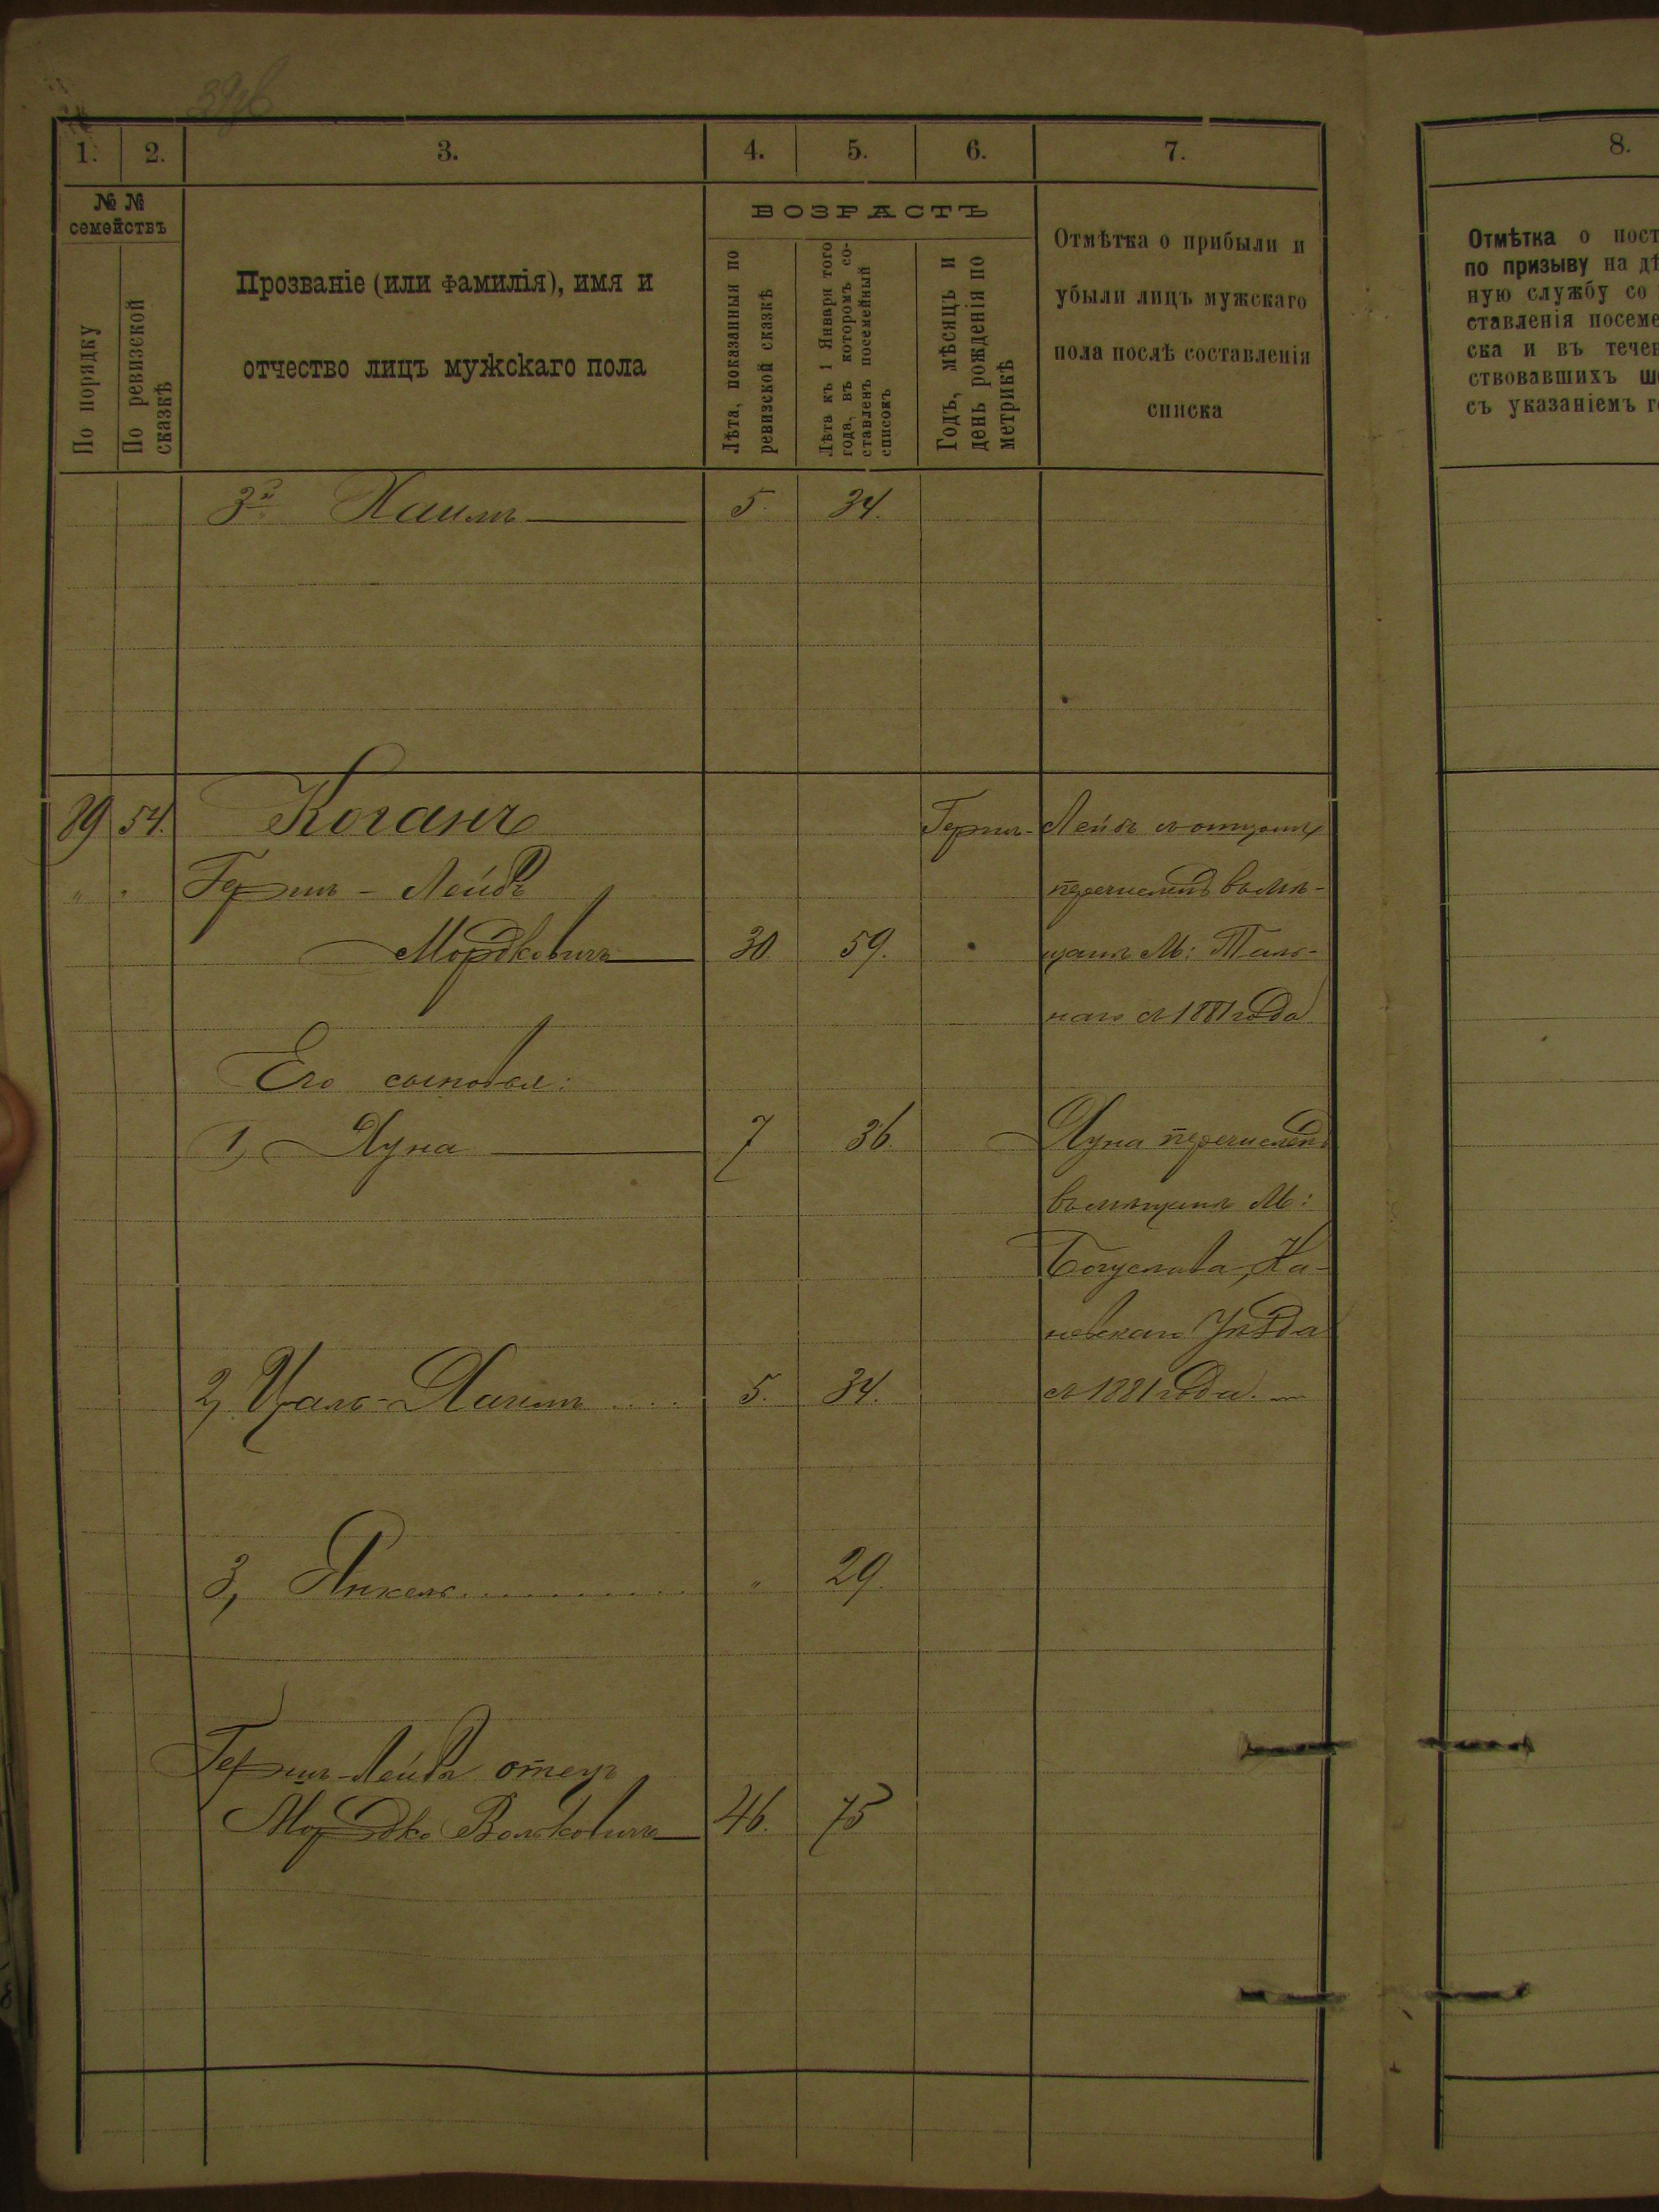 39об
1. 2. 3. 4. 5. 6. 7. 8.
№ №
семействъ
По порядку
По ревизской
сказкѣ
Прозваніе (или фамилія), имя и
отчество лицъ мужскаго пола
ВОЗРАСТЪ
Лѣта, показанныя по
ревизской сказкѣ
Лѣта къ 1 Января того
года, въ которомъ со-
ставленъ посемейный
списокъ
Годъ, мѣсяцъ и
день рожденія по
метрикѣ
Отмѣтка о прибыли и
убыли лицъ мужскаго
пола послѣ составленія
списка
Отмѣтка о пост
по призыву на дѣ
ную службу со
ставленія посеме
ска и въ течен
ствовавшихъ ш
съ указаніемъ г
3й Хаимъ 5. 34.
89 54. Коганъ
Гершъ - Лейбъ
Мордковичъ 30. 59.
Гершъ-Лейбъ съ отцомъ
перечисленъ въ мѣ-
щане М: Таль-
наго съ 1881 года
Его сыновья:
1, Хуна 7 36.
Хуна перечисленъ
въ мѣщане М:
Богуслава, Ка-
невскаго Уѣзда
съ 1881 года.
2, Хаимъ 5. 34.
3, Янкель 〃 29.
Гершъ-Лейба отецъ
Мордко Вольковичъ 46. 75